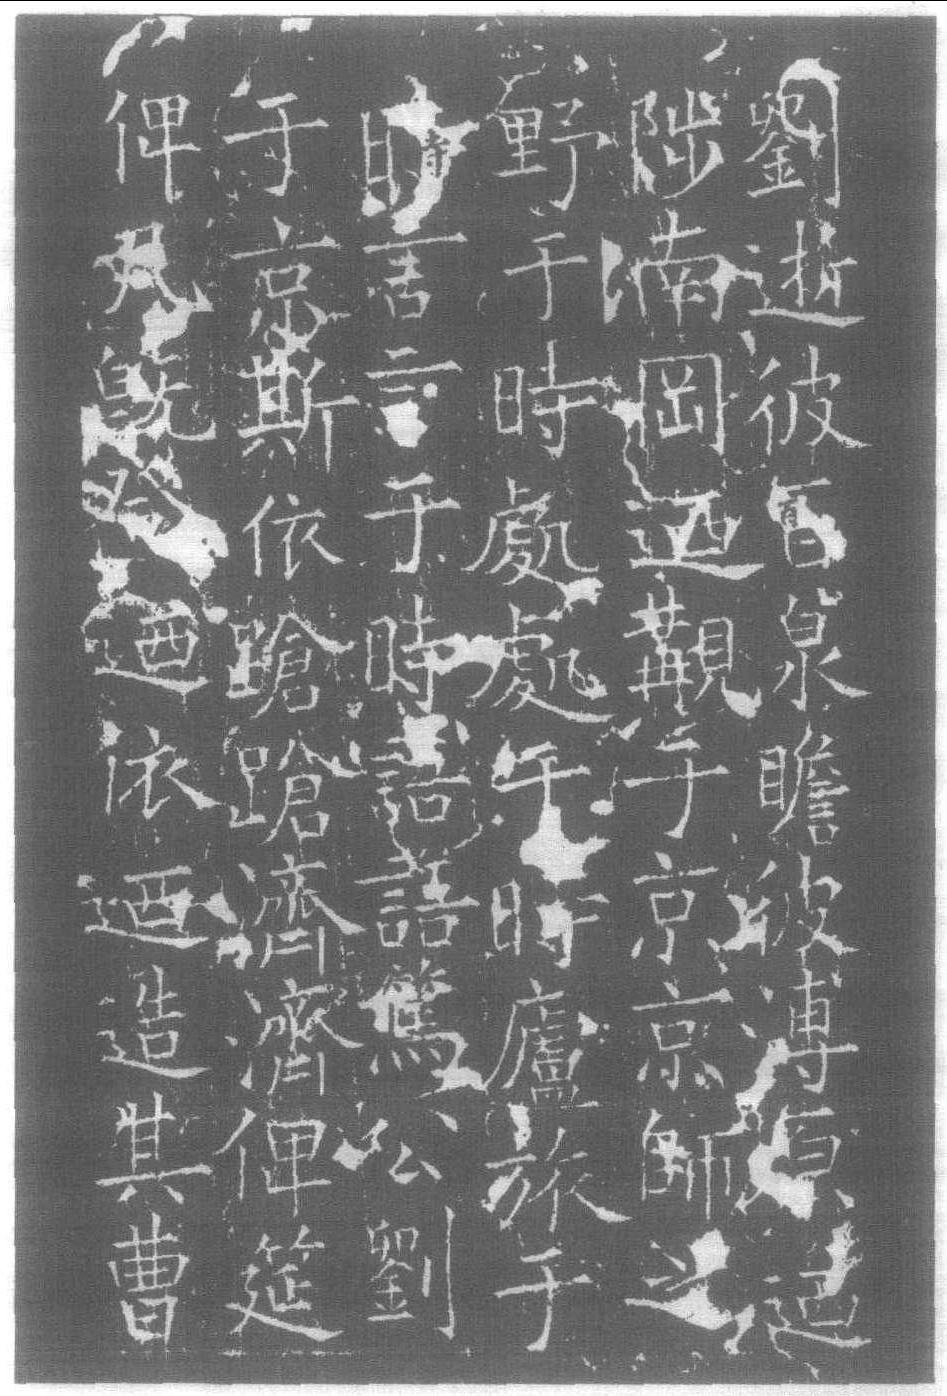 劉逝彼百泉瞻彼溥原迺
陟南岡迺覯于京京師之
野于時處處于時廬旅于
時言言于時語語篤公劉
于京斯依蹌蹌濟濟俾筵
俾几既登迺依迺造其曹